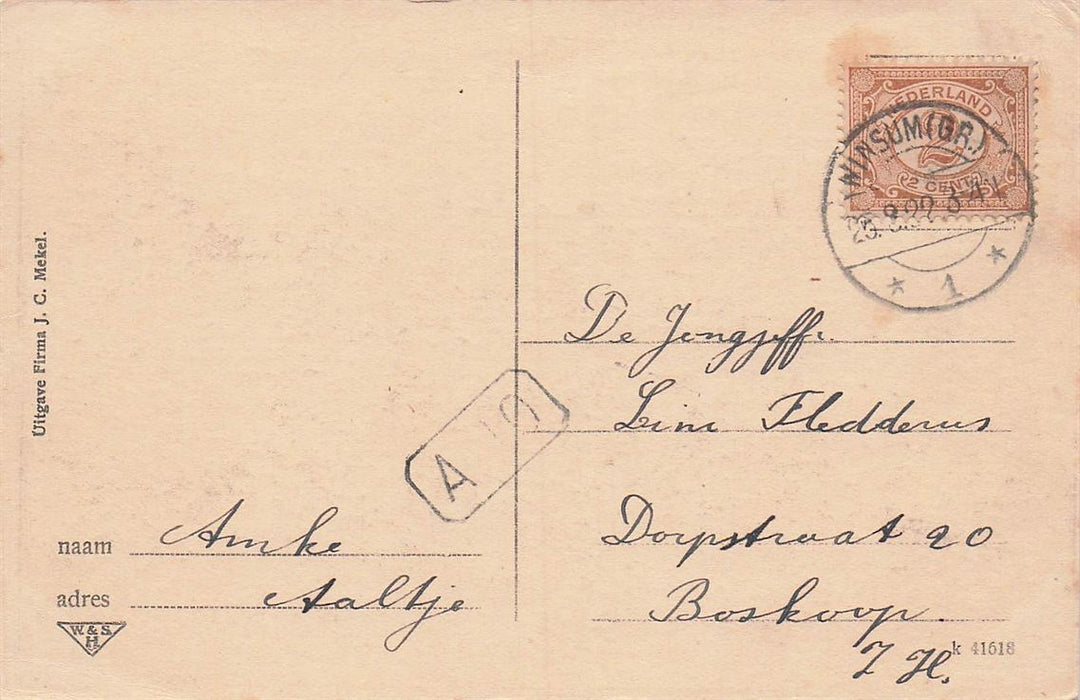 Uitgave Firma J. C. Mekel.
NEDERLAND
2
2 CENT
WINSUM (GR.)
25. 8.22 3-4 N
* 1 *
De Jongjeffr.
Lini Fledderus
A 10
Dorpstraat 20
Boskoop.
Z H.
naam Amke
adres Aaltje
W. & S.
H.
k 41618